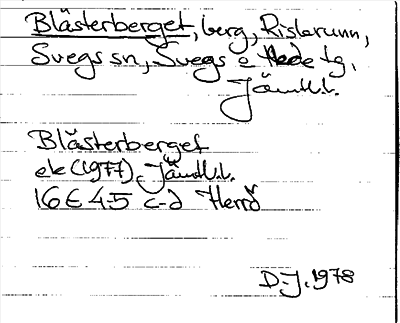 Blästerberget, berg, Risbrunn,
Svegs sn, Svegs o Hede tg,
Jämtl.l.
Blästerberget
ek (1977). Jämtl.l.
16E 4-5 c-d Herrö
D-J. 1978